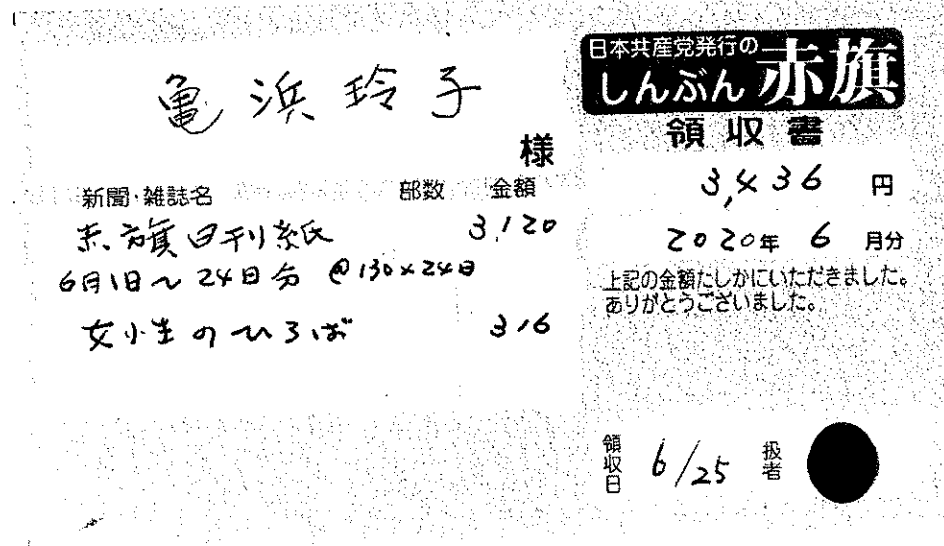 亀浜玲子
様
新聞・雑誌名 部数 金額
赤旗日刊紙 3,120
6月1日〜24日分 @130×24日
女性のひろば 316
日本共産党発行の
しんぶん赤旗
領収書
3,436円
2020年 6月分
上記の金額たしかにいただきました。
ありがとうございました。
領収日 6/25 扱者